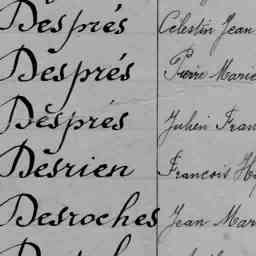 Després Célestin Jean
Després Pierre Marie
Després Julien Fran
Desrien François Hy
Desroches Jean Mar